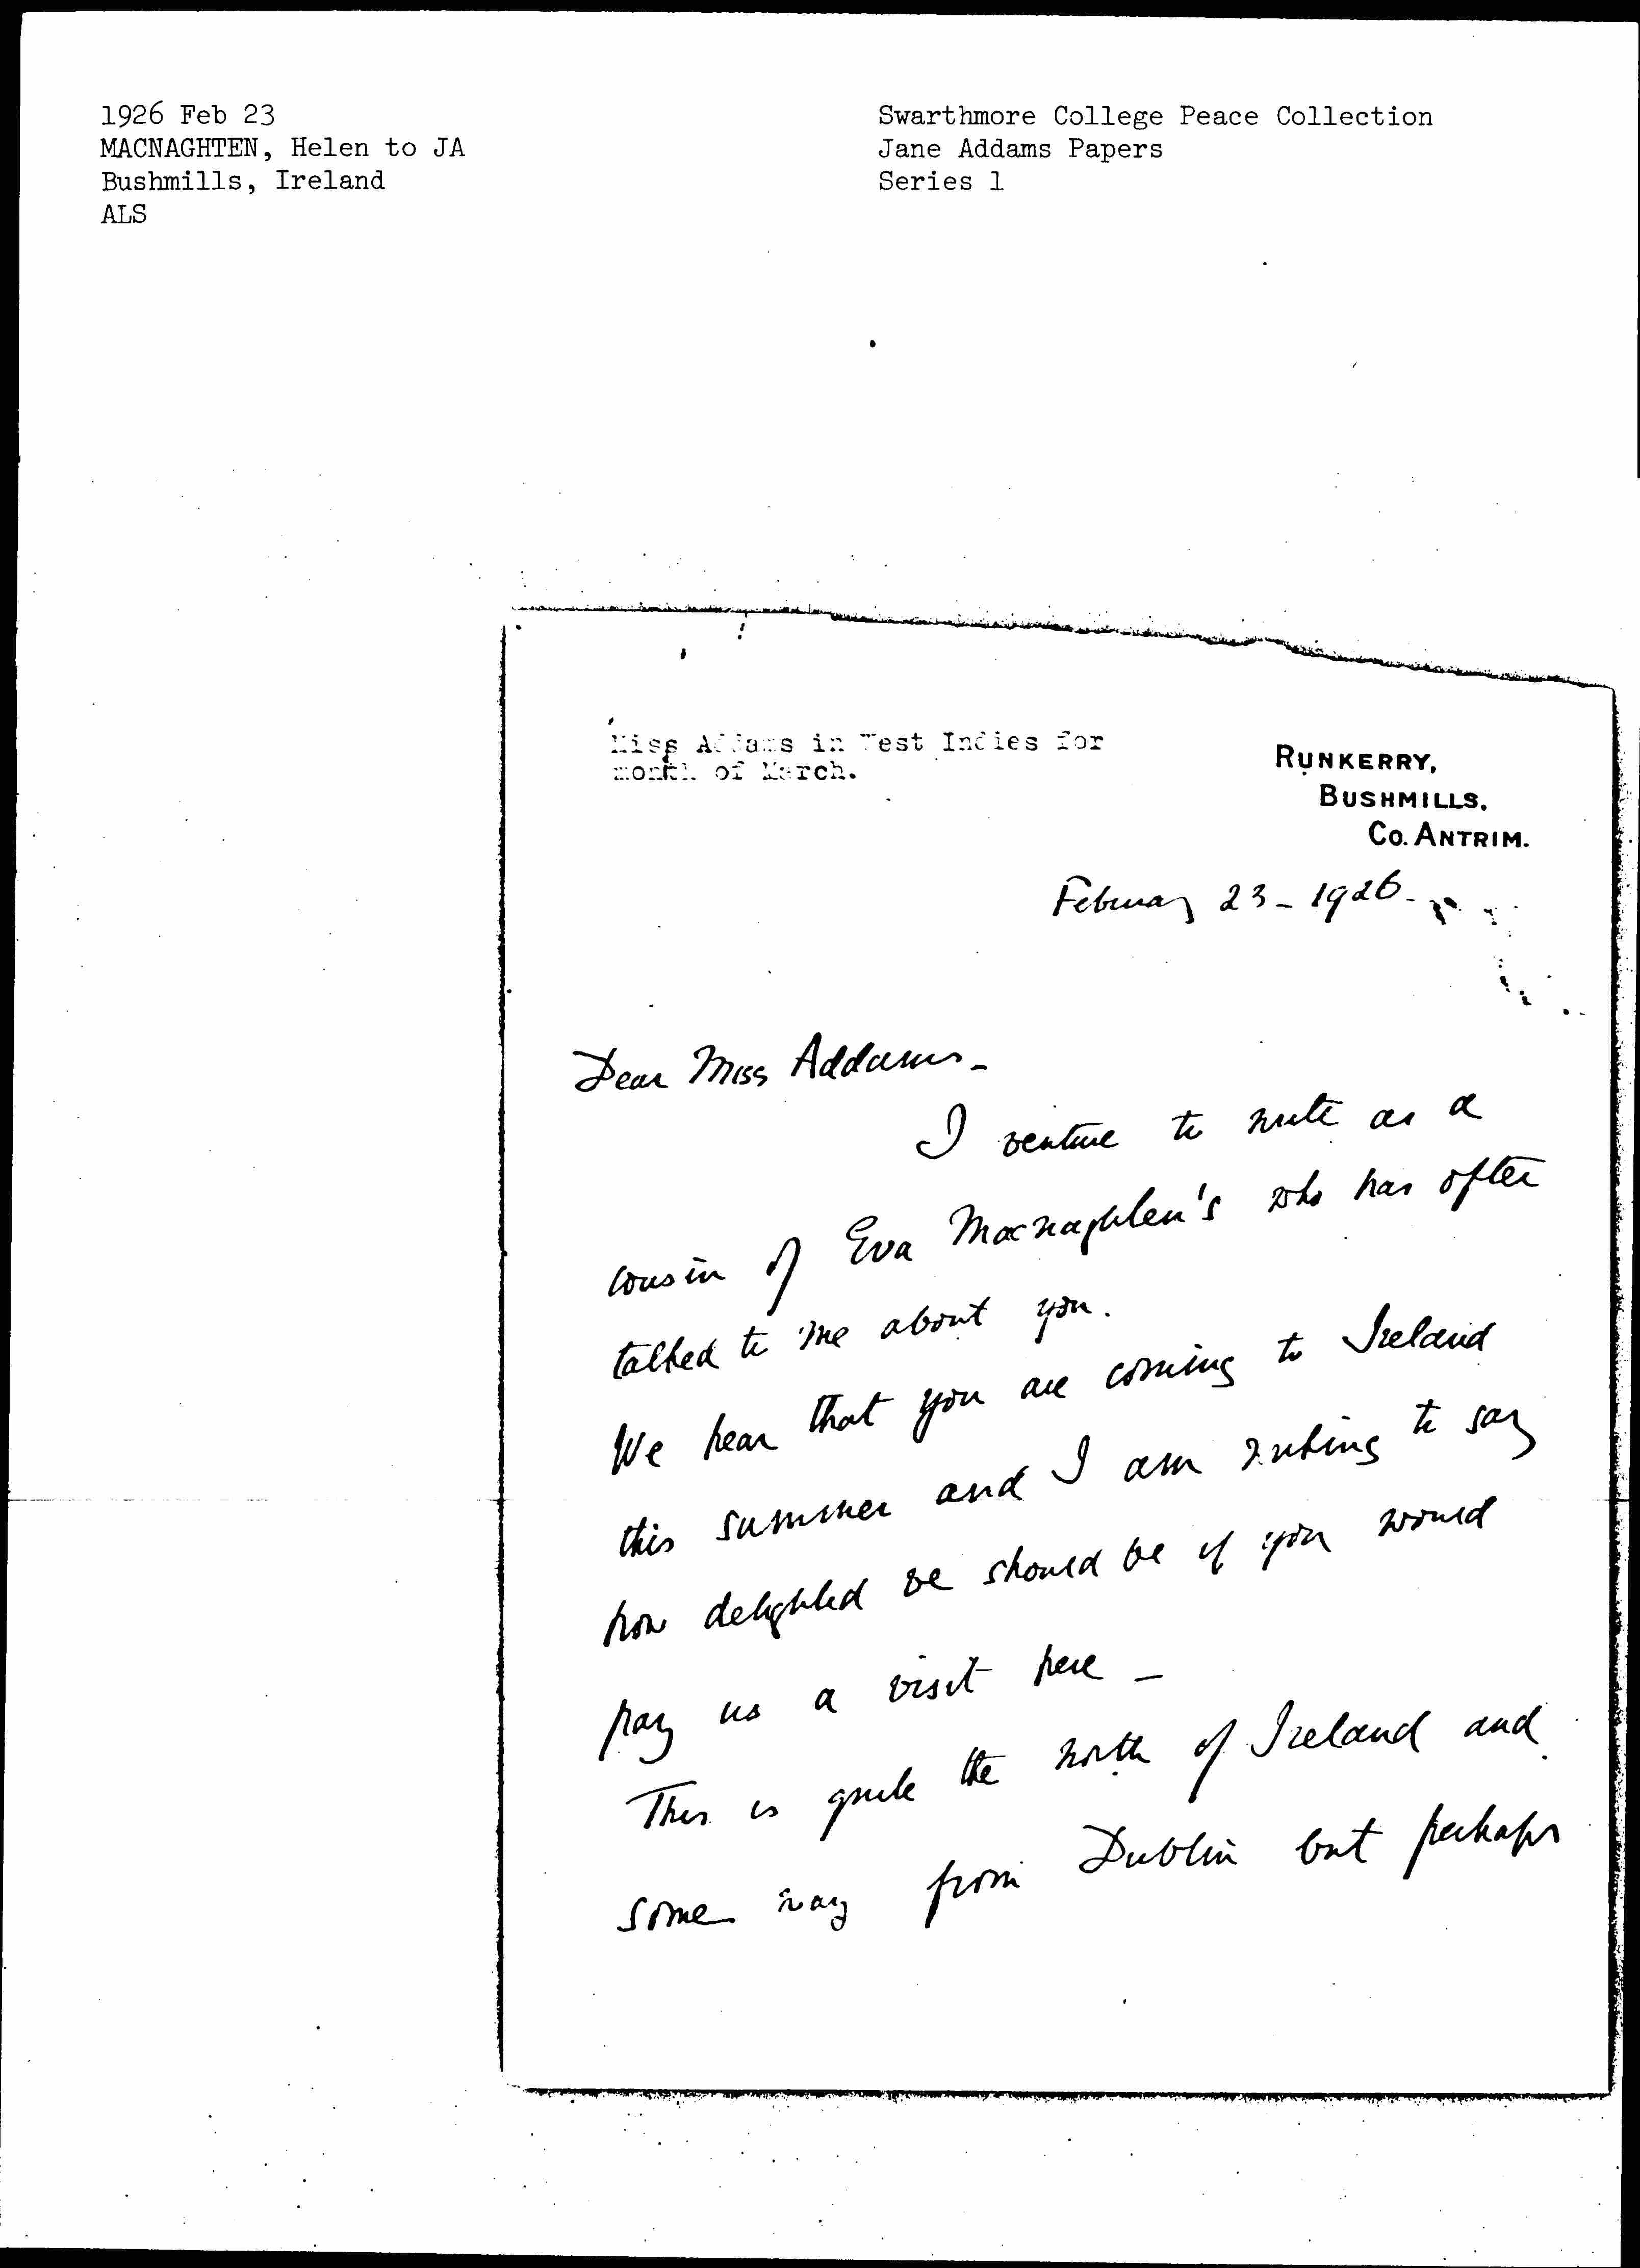 1926 Feb 23
MACNAGHTEN, Helen to JA
Bushmills, Ireland
ALS
Swarthmore College Peace Collection
Jane Addams Papers
Series 1
Miss Addams in West Indies for
month of March.
RUNKERRY,
BUSHMILLS.
CO. ANTRIM.
February 23 - 1926 -
Dear Miss Addams -
I venture to write as a
cousin of Eva Macnaghten's who has often
talked to me about you.
We hear that you are coming to Ireland
this summer and I am writing to say
how delighted we should be if you would
pay us a visit here -
This is quite the north of Ireland and
some way from Dublin but perhaps